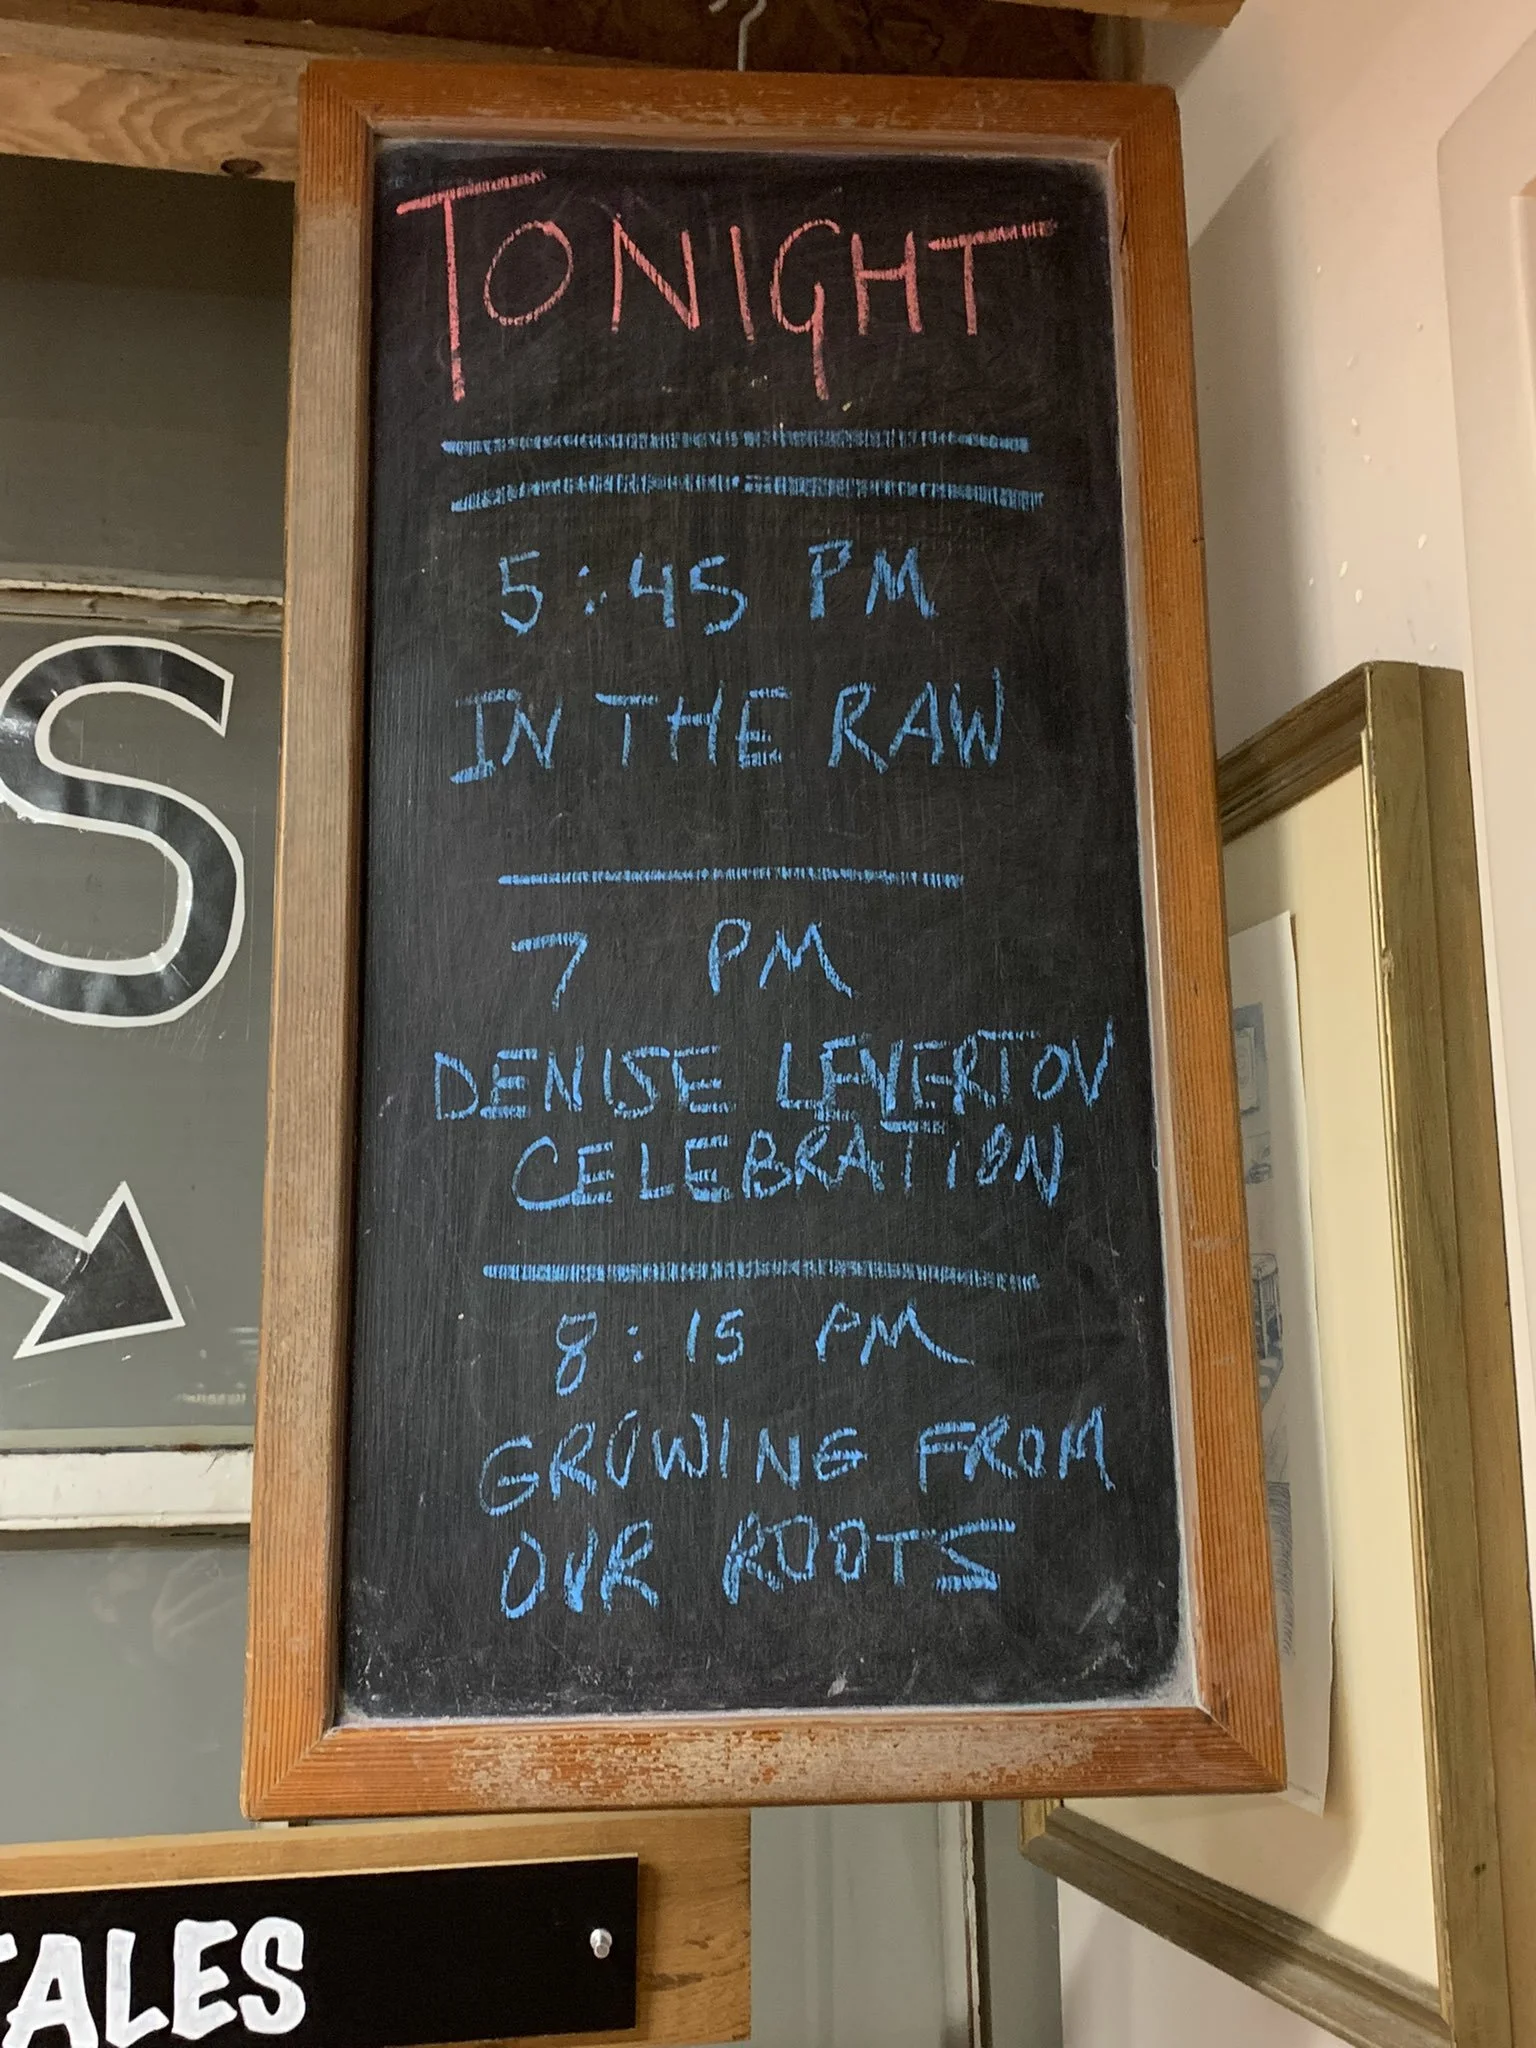 TONIGHT
5:45 PM
IN THE RAW
7 PM
DENISE LEVERTOV
CELEBRATION
8:15 PM
GROWING FROM
OUR ROOTS
S
TALES